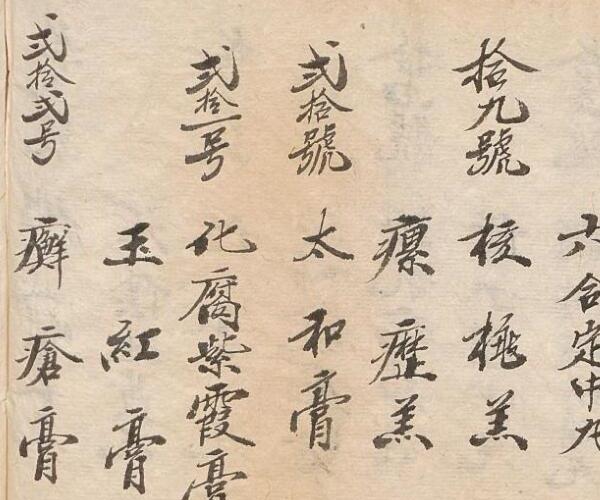 六合定中丸
拾九號 核桃羔
瘰癧羔
弍拾號 太和膏
弍拾一号 化腐紫霞膏
玉紅膏
弍拾弍号 癬瘡膏